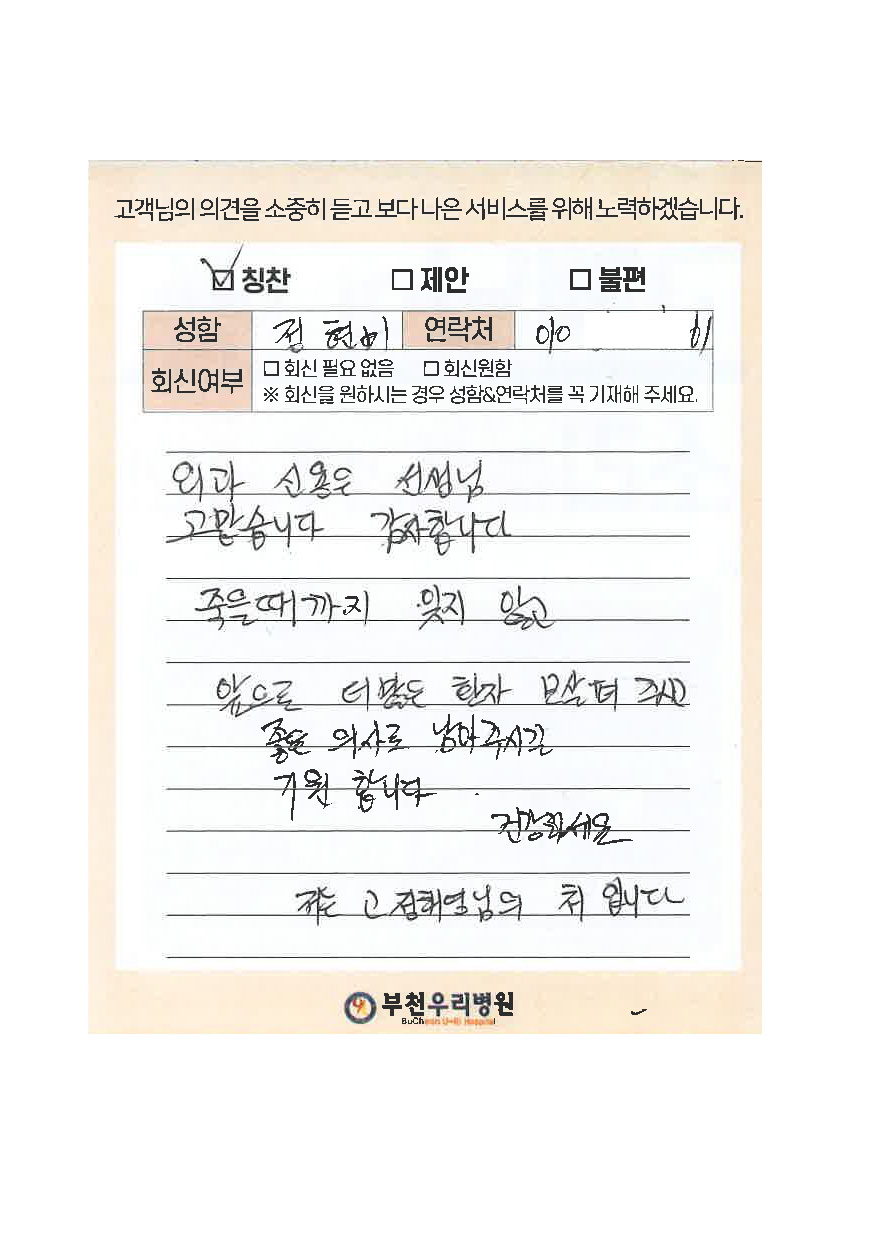 고객님의 의견을 소중히 듣고 보다 나은 서비스를 위해 노력하겠습니다.
☑ 칭찬 □ 제안 □ 불편
성함 정현비 연락처 010
회신여부 □ 회신 필요 없음 □ 회신원함
※ 회신을 원하시는 경우 성함&연락처를 꼭 기재해 주세요.
외과 신용우 선생님
고맙습니다 감사합니다
죽을때까지 잊지 않고
앞으로 더많은 환자 보살펴 주시고
좋은 의사로 남아주시길
기원 합니다
건강하세요
저는 고 정해영님의 처 입니다
부천우리병원
BuCheon U-Ri Hospital